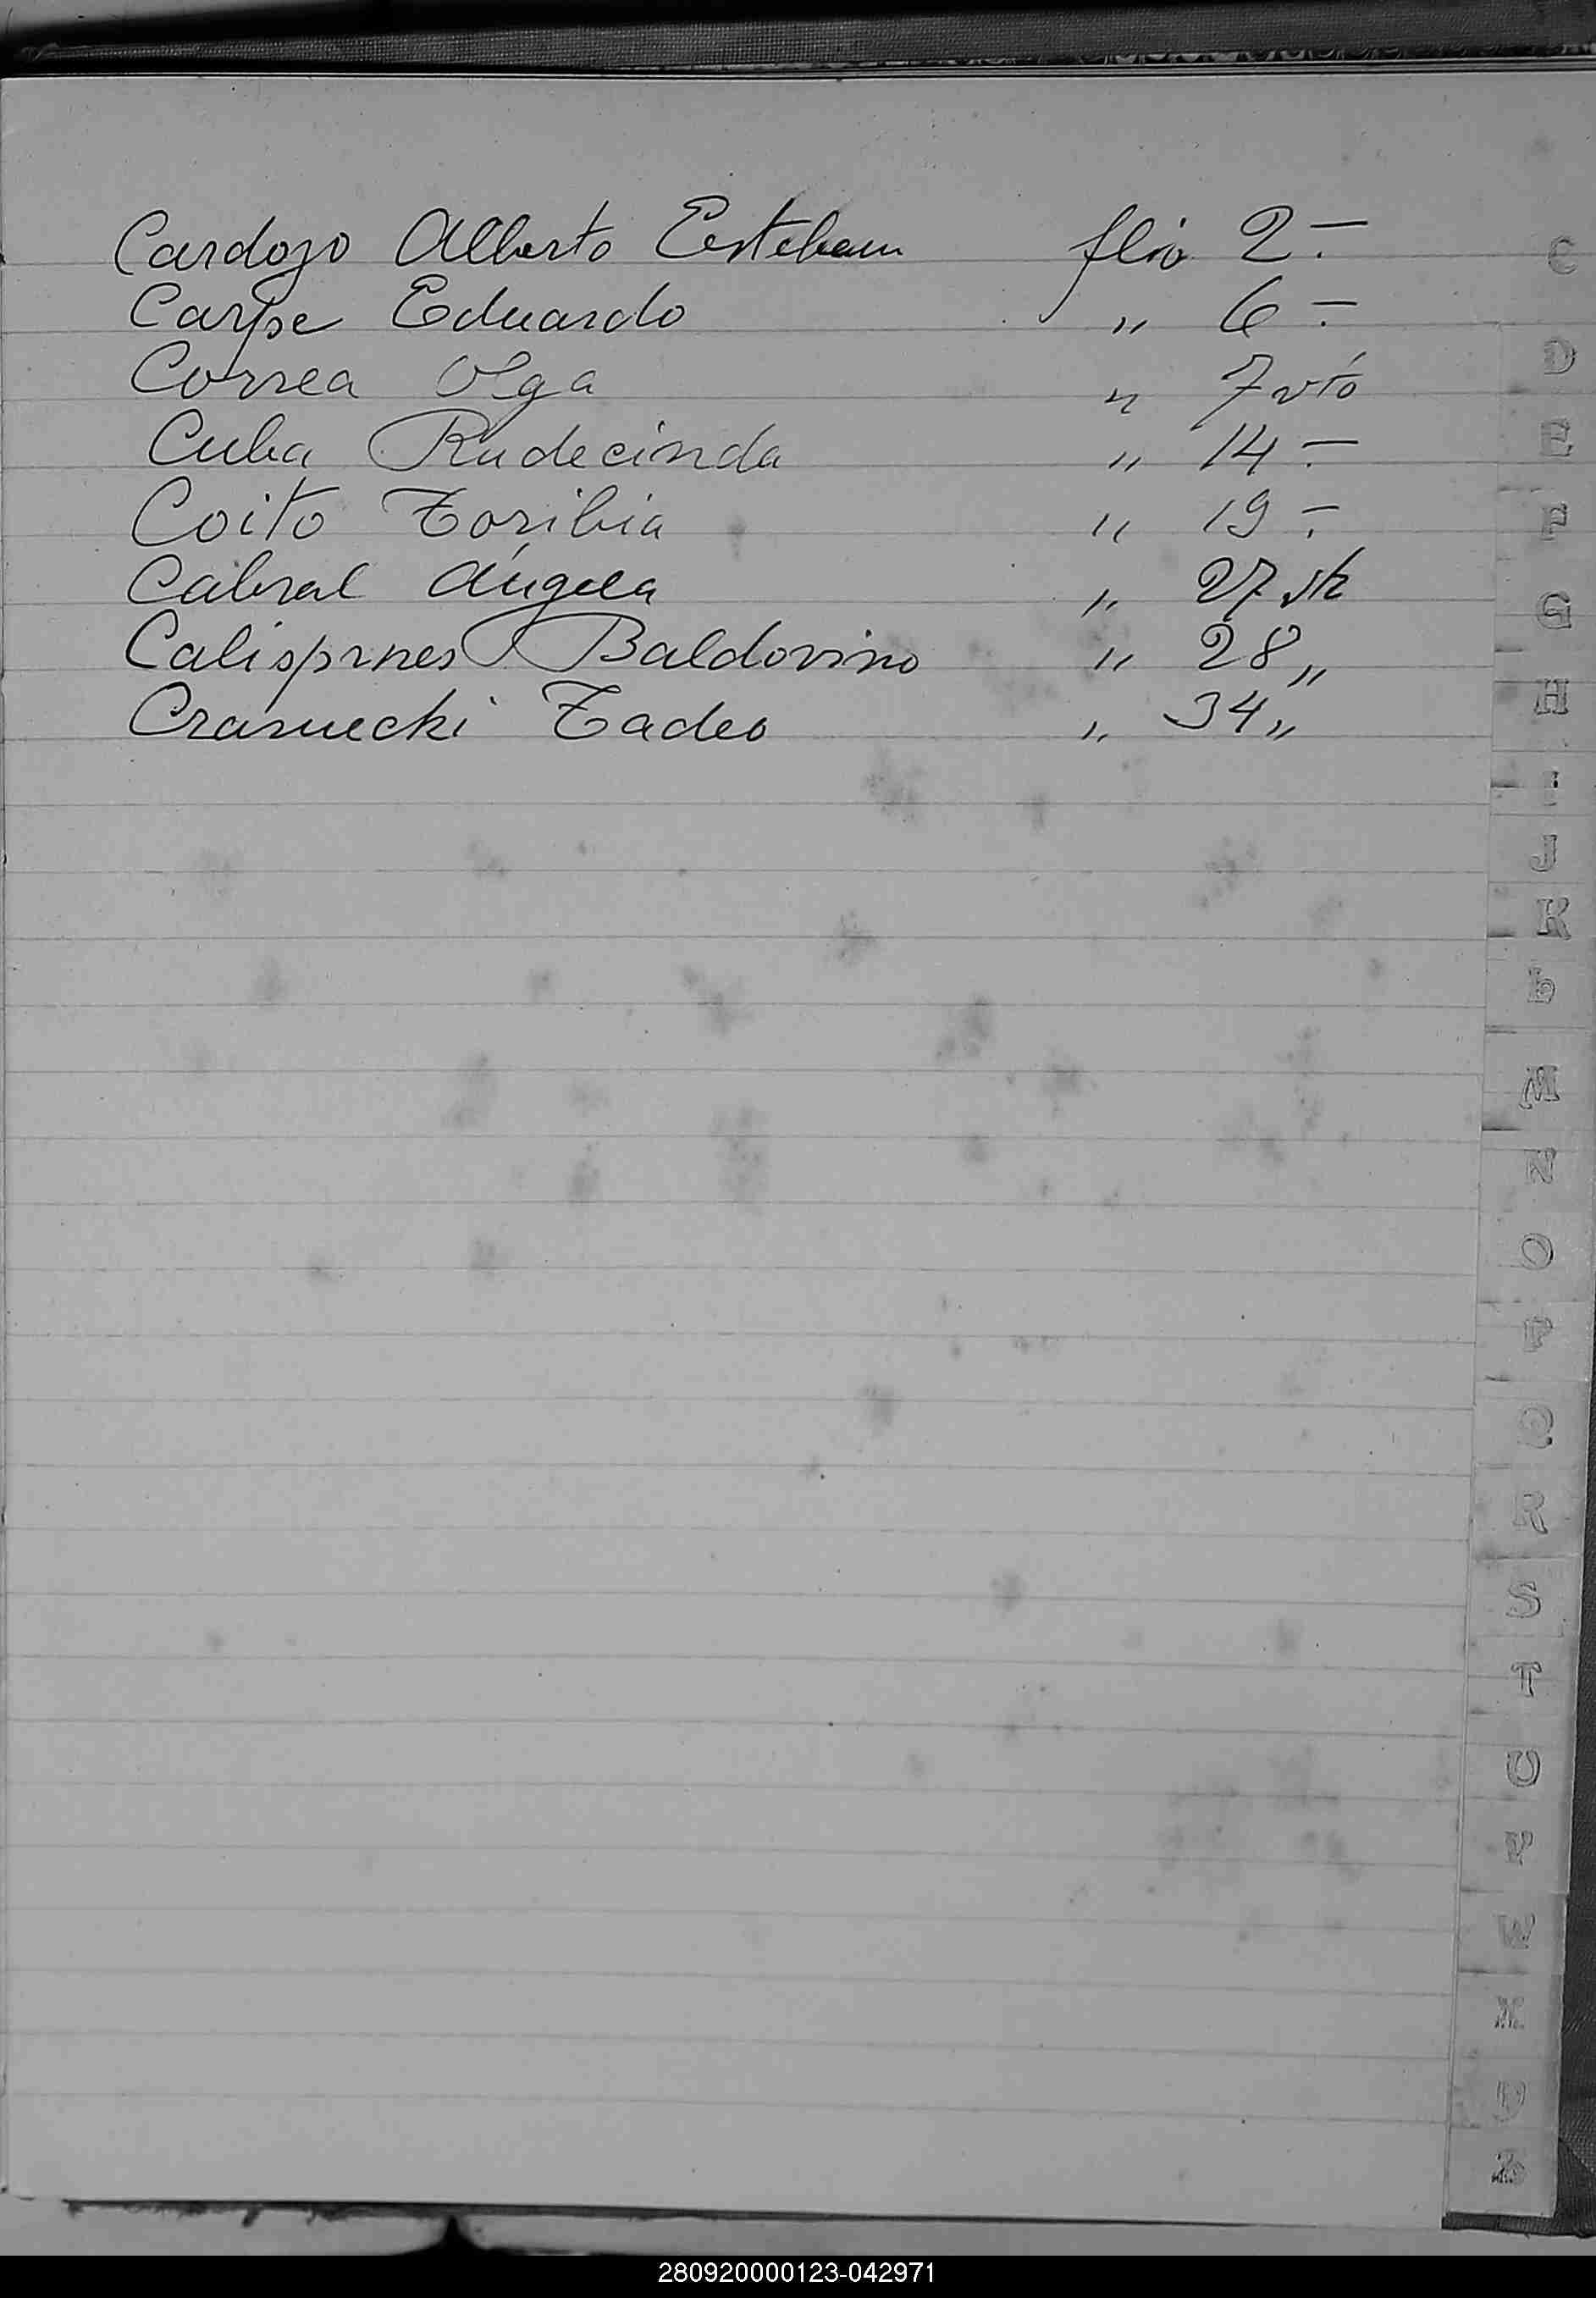 Cardozo Alberto Esteban flio 2.-
Carpe Eduardo " 6.-
Correa Olga " 7 vto
Cuba Rudecinda " 14.-
Coito Toribia " 19.-
Cabral Angela " 27 vto
Baldovino " 28 "
Tadeo " 34 "
C
D
E
F
G
H
I
J
K
L
M
N
O
P
Q
R
S
T
U
V
W
X
Y
Z
280920000123-042971